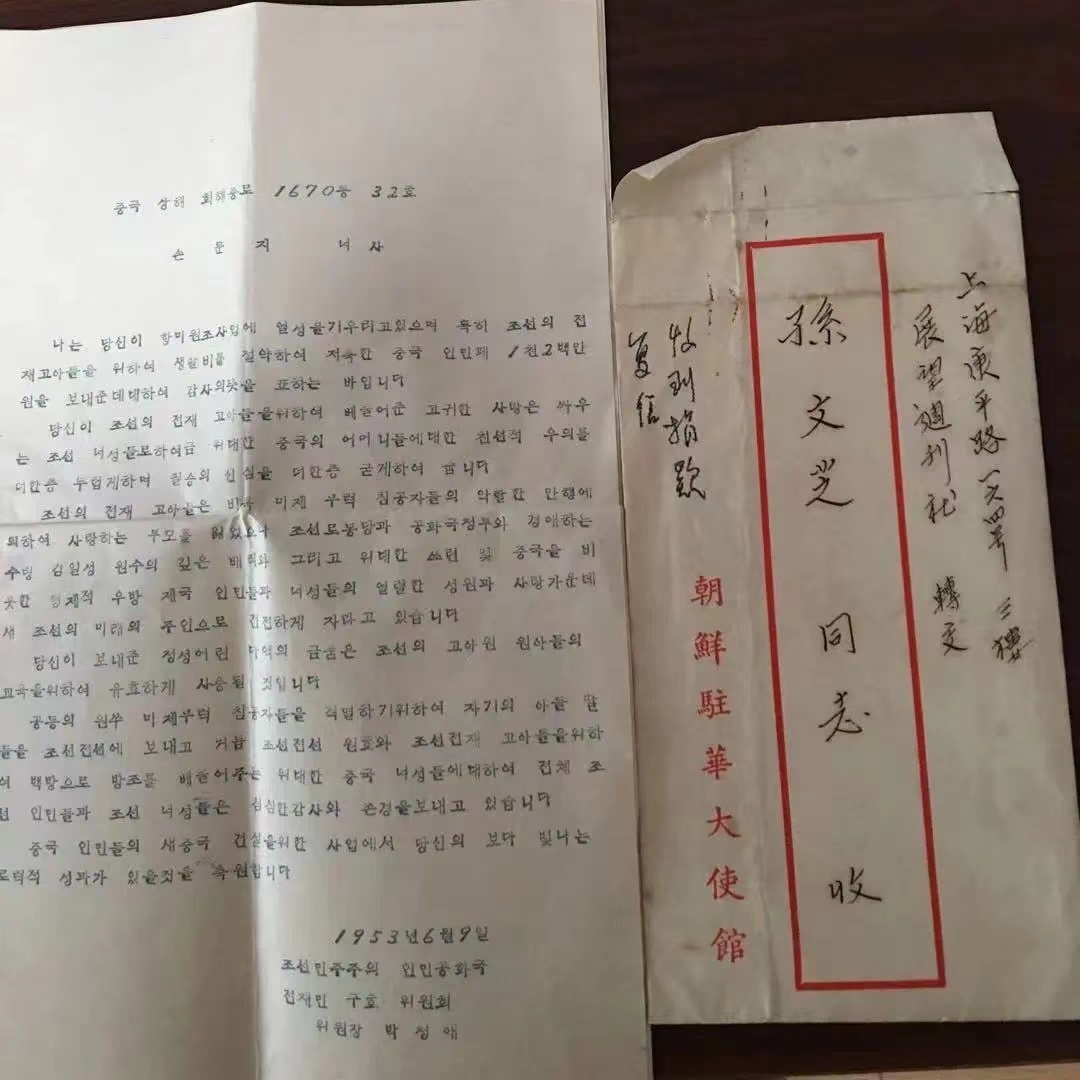 중국 상해 회해중로 1670동 32호
손 문 지 녀사
나는 당신이 항미원조사업에 열성을기우리고있으며 특히 조선의 전
재고아들을 위하여 생활비를 절약하여 저축한 중국 인민페 1천2백만
원을 보내준데대하여 감사의뜻을 표하는 바입니다
당신이 조선의 전재 고아들을위하여 베풀어준 고귀한 사랑은 싸우
는 조선 녀성들로하여금 위대한 중국의 어머니들에대한 친선적 우의를
더한층 두텁게하며 필승의 신심을 더한층 굳게하여 줍니다
조선의 전재 고아들은 비록 미제 무력 침공자들의 악랄한 만행에
의하여 사랑하는 부모를 잃었으나 조선로동당과 공화국정부와 경애하는
수령 김일성 원수의 깊은 배려와 그리고 위대한 쏘련 및 중국을 비
롯한 형제적 우방 제국 인민들과 녀성들의 열렬한 성원과 사랑가운데
새 조선의 미래의 주인으로 건전하게 자라고 있습니다
당신이 보내준 정성어린 다액의 금품은 조선의 고아원 원아들의
교육을위하여 유효하게 사용될 것입니다
공동의 원쑤 미제무력 침공자들을 격멸하기위하여 자기의 아들 딸
들을 조선전선에 보내고 거듭 조선전선 원호와 조선전재 고아들을위하
여 백방으로 방조를 베풀어주는 위대한 중국 녀성들에대하여 전체 조
선 인민들과 조선 녀성들은 심심한감사와 존경을보내고 있습니다
중국 인민들의 새중국 건설을위한 사업에서 당신의 보다 빛나는
로력적 성과가 있을것을 축원합니다
1953년6월9일
조선민주주의 인민공화국
전재민 구호 위원회
위원장 박정애
上海康平路一六四号 三樓
展望週刊社 轉交
孫文芷同志 收
收到捐款
复信
朝鮮駐華大使館